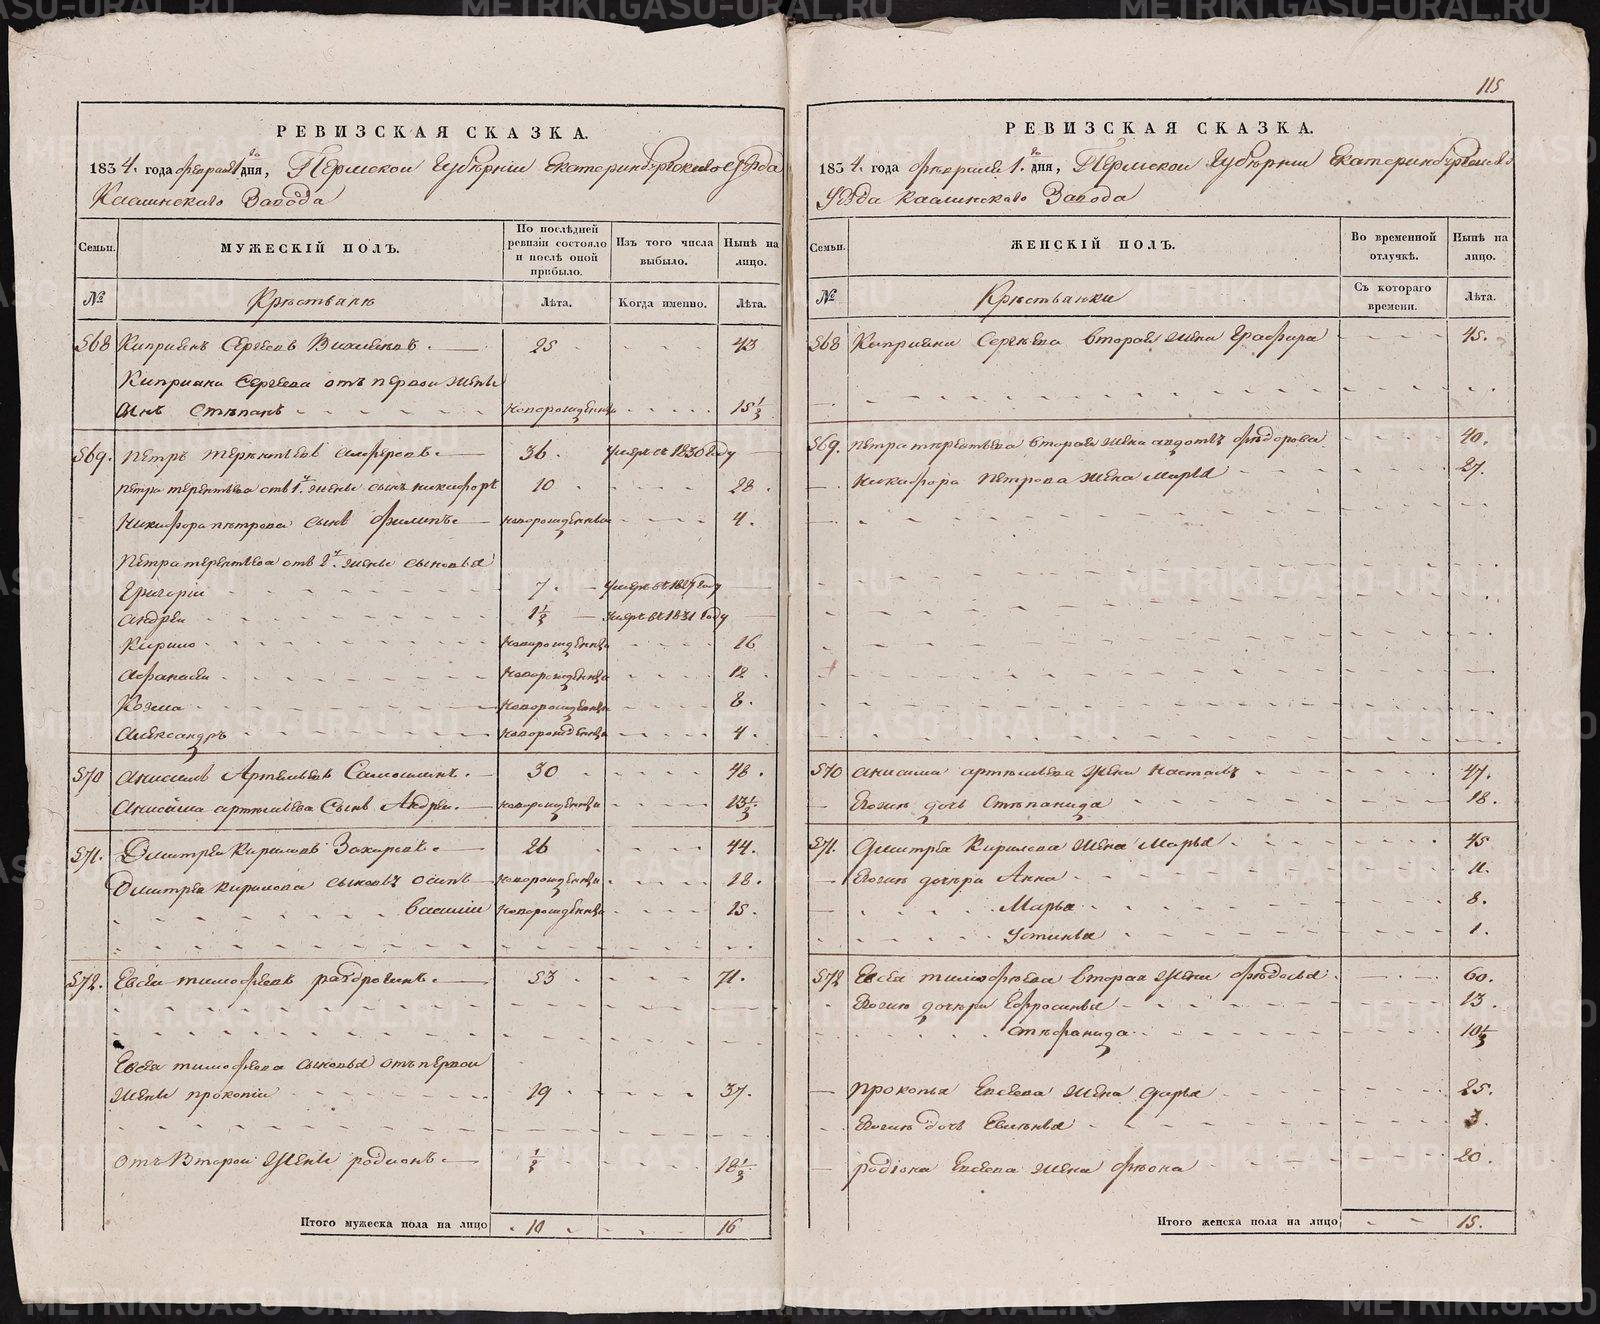 115
РЕВИЗСКАЯ СКАЗКА.
1834. года февраля 1 го дня, Пермской Губернiи Екатеринбургскаго уѣзда
Каслинскаго Завода
Семьи.
МУЖЕСКІЙ ПОЛЪ.
По послѣдней ревизіи состояло и послѣ оной прибыло.
Изъ того числа выбыло.
Нынѣ на лицо.
№
Крестьяне
Лѣта.
Когда именно.
Лѣта.
568 Кипріянъ Сергѣевъ 25 43
Кипріяна Сергѣева отъ первой жены
сынъ Степанъ новорожденны 15½
569. Петръ Терентьевъ 36 умеръ въ 1830 году
Петра Терентьева отъ 1й жены сынъ Никифоръ 10 28.
Никифора Петрова сынъ Филипъ новорожденны 4.
Петра Терентьева отъ 2й жены сыновья
Григорій 7 умеръ въ году
Андрей 1½ умеръ въ 1831 году
Кирило новорожденны 16
Афанасей новорожденны 12
Козма новорожденны 8.
Александръ новорожденны 4.
570 Анисимъ Артемьевъ 30 48.
Анисима Артемьева сынъ Андрей новорожденны 13½
571. Дмитрей Кириловъ Захаровъ 26 44.
Дмитрея Кирилова сыновъя Осипъ новорожденны 18.
Василій новорожденны 15.
572. Евсей Тимофеевъ 53 71.
Евсея Тимофеева сыновья отъ первой
жены Прокопій 19 37.
отъ второй жены Родионъ ½ 18½
Итого мужеска пола на лицо 10 16
РЕВИЗСКАЯ СКАЗКА.
1834. года февраля 1. го дня, Пермской Губернiи Екатеринбургскаго
Уѣзда Каслинскаго Завода
Семьи.
ЖЕНСКІЙ ПОЛЪ.
Во временной отлучкѣ.
Нынѣ на лицо.
№
Крестьянки
Съ котораго времени.
Лѣта.
568 Кипріяна Сергѣева вторая жена 45.
569. Петра Терентьева вторая жена Авдотья Федорова 40.
Никифора Петрова жена Марья 27.
570 Анисима Артемьева жена Настасья 47.
Его же дочь Степанида 18.
571. Дмитрея Кирилова жена Марья 45
Его же дочери Анна 11.
Марья 8.
Устинья 1.
572 Евсея Тимофеева вторая жена Федосья 60.
Его же дочери Ефросинья 13.
Стефанида 10½
Прокопья Евсеева жена Дарья 25.
Его же дочь 3.
Родіона Евсеева жена 20.
Итого женска пола на лицо 15.
METRIKI.GASO-URAL.RU